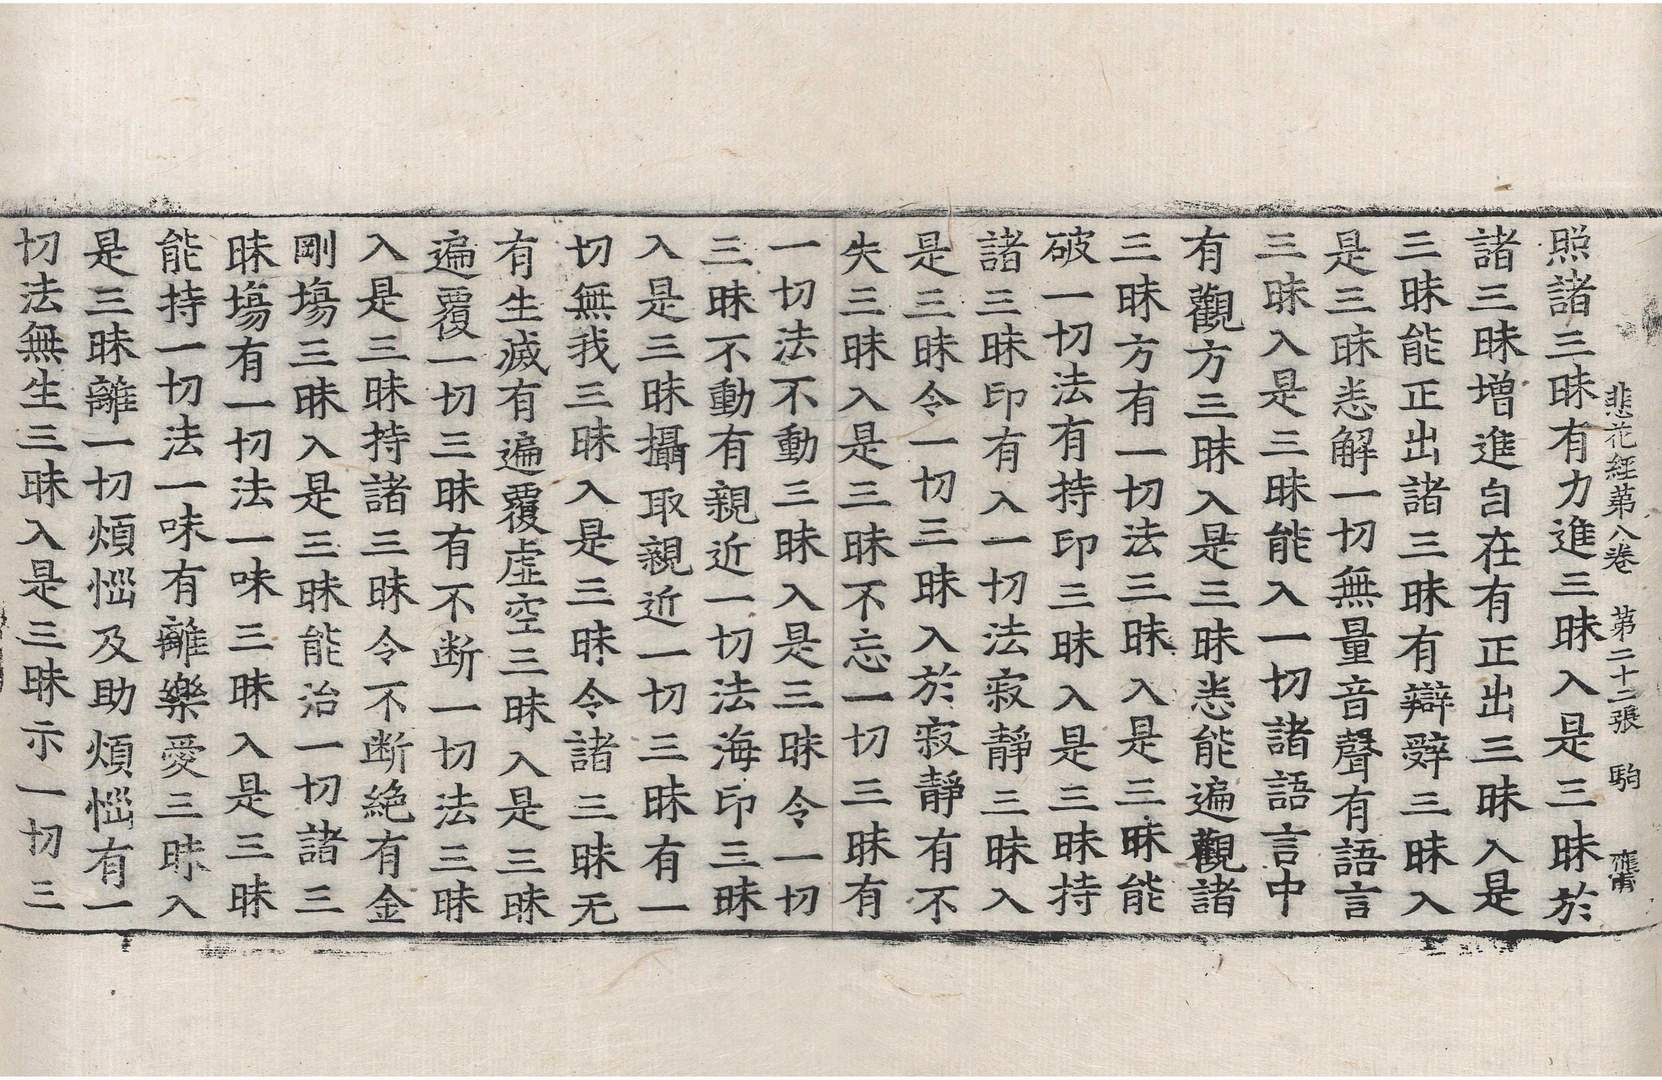 悲花經第八卷 第二十二張 駒
照諸三昧有力進三昧入是三昧於
諸三昧增進自在有正出三昧入是
三昧能正出諸三昧有辯辤三昧入
是三昧悉解一切無量音聲有語言
三昧入是三昧能入一切諸語言中
有觀方三昧入是三昧悉能遍觀諸
三昧方有一切法三昧入是三昧能
破一切法有持印三昧入是三昧持
諸三昧印有入一切法寂靜三昧入
是三昧令一切三昧入於寂靜有不
失三昧入是三昧不忘一切三昧有
一切法不動三昧入是三昧令一切
三昧不動有親近一切法海印三昧
入是三昧攝取親近一切三昧有一
切無我三昧入是三昧令諸三昧无
有生滅有遍覆虛空三昧入是三昧
遍覆一切三昧有不断一切法三昧
入是三昧持諸三昧令不断絶有金
剛塲三昧入是三昧能治一切諸三
昧塲有一切法一味三昧入是三昧
能持一切法一味有離樂愛三昧入
是三昧離一切煩惱及助煩惱有一
切法無生三昧入是三昧示一切三